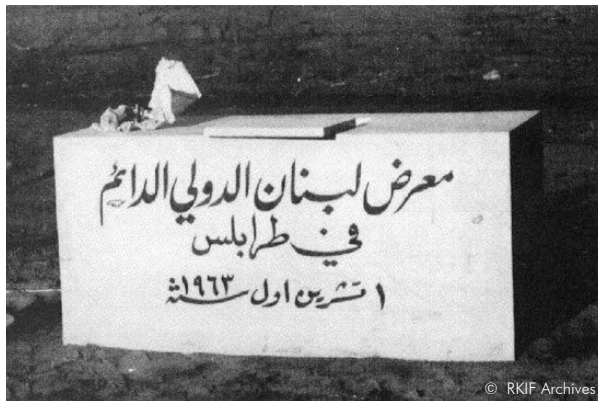 معرض لبنان الدولي الدائم
في طرابلس
١ تشرين اول سنة ١٩٦٣
© RKIF Archives